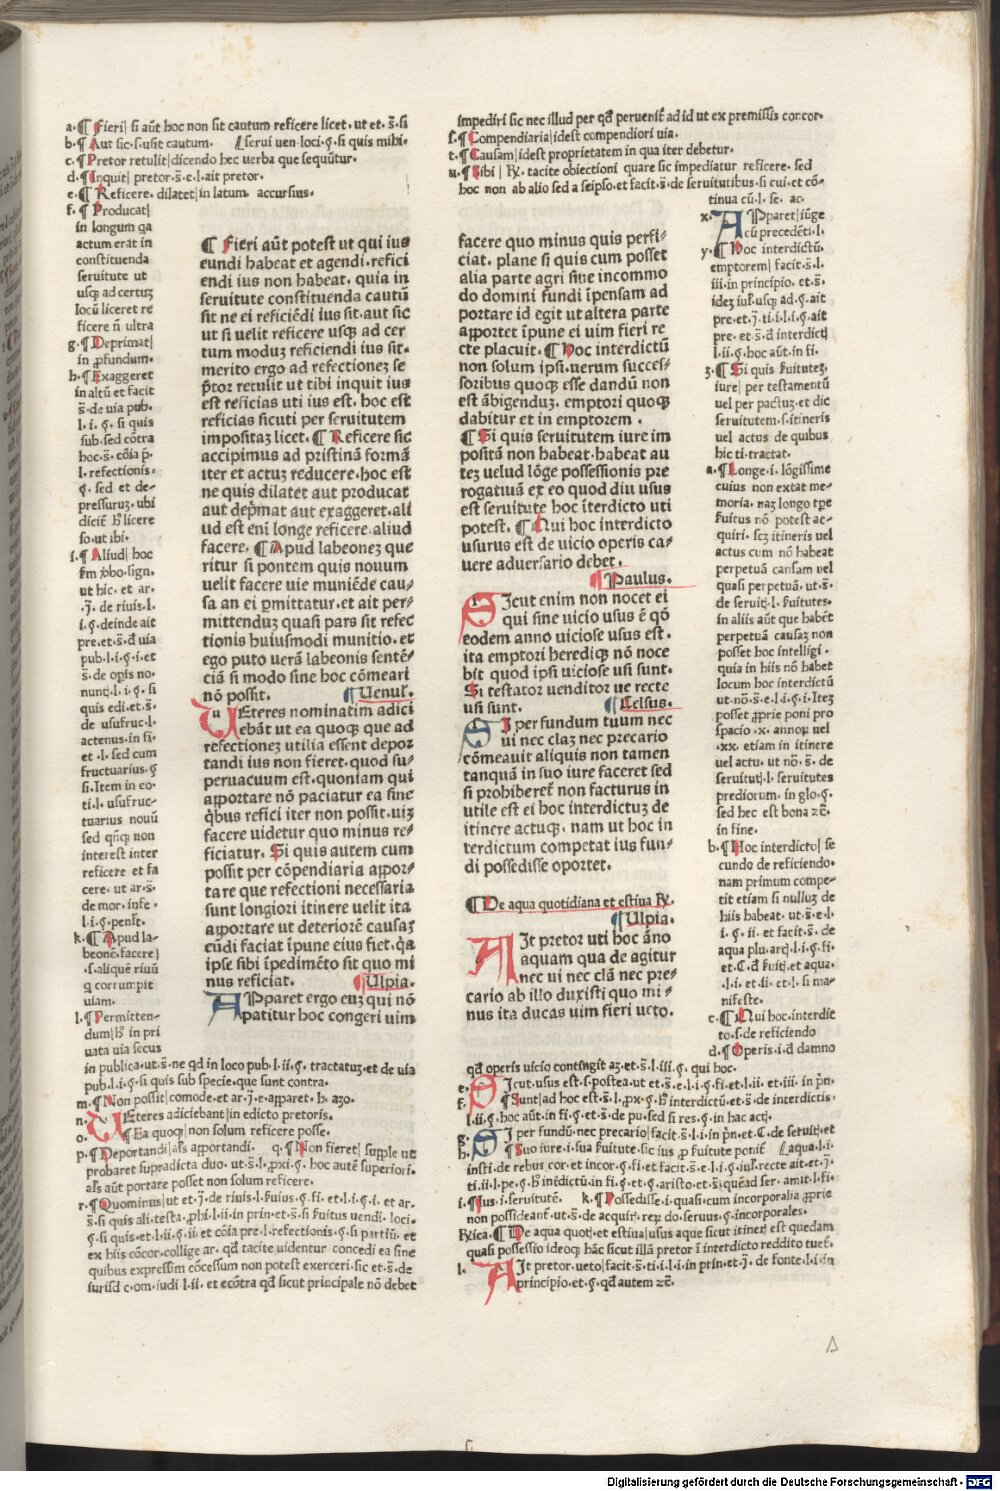 a.¶ Fieri| si aūt hoc non sit cautum reficere licet. ut et. s̄. si
b.¶ Aut sic. s. usit cautum. ⁋serui uen. loci. §. si quis mihi.
c.¶ Pretor retulit| dicendo hec uerba que sequūtur.
d.¶ Inquit| pretor. s̄. e. l. ait pretor.
e.¶ Reficere. dilatet| in latum. accursius.
f.¶ Producat|
in longum qa
actum erat in
constituenda
seruitute ut
usqȝ ad certuȝ
locū liceret re
ficere n̄ ultra
g.¶ Deprimat|
in ꝓfundum.
h.¶ Exaggeret
in altū et facit
s̄. de uia pub.
l. i. §. si quis
sub. sed cōtra
hoc. s̄. cōia p̄.
l. refectionis.
§. sed et de-
pressuruȝ. ubi
dicit̄ hꝰ licere
so. ut ibi.
i.¶ Aliud| hoc
ut hic. et ar.
.j̄. de riuis. l.
i. §. deinde ait
pre. et. s̄. đ uia
pub. l. i. §. i. et
s̄. de opis no-
nunt. l. i. §. si
quis edi. et. s̄.
de usufruc. l.
actenus. in fi.
et .l. sed cum
fructuarius. §
si. Item in eo.
ti. l. usufruc-
tuarius nouū
sed qn̄qȝ non
interest inter
reficere et fa
cere. ut ar. s̄.
de mor. infe.
l. i. §. penl̄t.
k.¶ Apud la-
beonē. facere|
.s. aliquē riuū
q corrumpit
uiam.
l.¶ Permitten-
dum| hꝰ in pri
uata uia secus
in publica. ut. s̄. ne qd in loco pub. l. ii. §. tractatuȝ. et de uia
pub. l. i. §. si quis sub specie. que sunt contra.
m.¶ Non possit| comode. et ar. j̄. e. apparet. h. aȝo.
n. UEteres adiciebant| in edicto pretoris.
o. ¶ Ea quoqȝ| non solum reficere posse.
p.¶ Deportandi| al's apportandi. q.¶ Non fieret| supple ut
probaret supradicta duo. ut. s̄. l. ꝓxi. §. hoc autē superiori.
al's aūt portare posset non solum reficere.
r.¶ Quominus| ut et. j̄. de riuis. l. ẜuius. §. fi. et. l. i. §. i. et ar.
s̄. si quis ali. testa. ꝓhi. l. ii. in prin. et. s̄. si ẜuitus uendi. loci.
§. si quis. et. l. ii. §. ii. et cōia pre. l. refectionis. §. si partiū. et
ex hiis cōcor. collige ar. qđ tacite uidentur concedi ea sine
quibus expressim cōcessum non potest exerceri. sic et. s̄. de
iurisđ c. om. iudi l. ii. et ecōtra qđ sicut principale nō debet
¶ Fieri aūt potest ut qui ius
eundi habeat et agendi. refici
endi ius non habeat. quia in
seruitute constituenda cautū
sit ne ei reficiēdi ius sit. aut sic
ut si uelit reficere usqȝ ad cer
tum moduȝ reficiendi ius sit.
merito ergo ad refectioneȝ se
p̄tor retulit ut tibi inquit ius
est reficias uti ius est. hoc est
reficias sicuti per seruitutem
impositaȝ licet. ¶ Reficere sic
accipimus ad pristinā formā
iter et actuȝ reducere. hoc est
ne quis dilatet aut producat
aut dep̄mat aut exaggeret. ali
ud est eni longe reficere. aliud
facere. ¶ Apud labeoneȝ que
ritur si pontem quis nouum
uelit facere uie muniēde cau-
sa an ei ꝑmittatur. et ait per-
mittenduȝ quasi pars sit refec
tionis huiusmodi munitio. et
ego puto uerā labeonis sentē-
ciā si modo sine hoc cōmeari
nō possit. ¶ Uenul̄.
u UEteres nominatim adici
ebāt ut ea quoqȝ que ad
refectioneȝ utilia essent depor
tandi ius non fieret. quod su-
peruacuum est. quoniam qui
apportare nō paciatur ea sine
qbus refici iter non possit. uiȝ
facere uidetur quo minus re-
ficiatur. Si quis autem cum
possit per cōpendiaria appor-
tare que refectioni necessaria
sunt longiori itinere uelit ita
apportare ut deteriorē causaȝ
eūdi faciat īpune eius fiet. qa
ipse sibi īpedimēto sit quo mi
nus reficiat. ¶ Ulpia.
APparet ergo euȝ qui nō
patitur hoc congeri uim
impediri sic nec illud per qđ peruenit̄ ad id ut ex premissis concor.
s.¶ Compendiaria| idest compendiori uia.
t.¶ Causam| idest proprietatem in qua iter debetur.
u.¶ Sibi| R̄. tacite obiectioni quare sic impediatur reficere. sed
hoc non ab alio sed a seipso. et facit. s̄. de seruitutibus. si cui. et cō-
tinua cū. l. se. ac.
x. APparet| iūge
cū precedēti. l.
y.¶ Hoc interdictū.
emptorem| facit. s̄. l.
iii. in principio. et. s̄.
ideȝ iul̄. usqȝ ad. §. ait
pre. et. j̄. ti. i. l. i. §. ait
pre. et. s̄. đ interdictȷ
l. ii. §. hoc aūt. in fi.
ȝ.¶ Si quis ẜuituteȝ.
iure| per testamentū
uel per pactuȝ. et dic
seruitutem. s. itineris
uel actus de quibus
hic ti. tractat.
a.¶ Longe. i. lōgissime
cuius non extat me-
moria. naȝ longo tp̄e
ẜuitus nō potest ac-
quiri. scȝ itineris uel
actus cum nō habeat
perpetuā causam uel
quasi perpetuā. ut. s̄.
de seruit. l. ẜuitutes.
in aliis aūt que habēt
perpetuā causaȝ non
posset hoc intelligi.
quia in hiis nō habet
locum hoc interdictū
ut. nō. s̄. e. l. i. §. i. Iteȝ
posset ꝓprie poni pro
spacio .x. annoꝝ uel
.xx. etiam in itinere
uel actu. ut nō. s̄. de
seruitut. l. seruitutes
prediorum. in glo. §.
sed hec est bona ⁊c̄.
in fine.
b.¶ Hoc interdicto| se
cundo de reficiendo.
nam primum compe-
tit etiam si nulluȝ de
hiis habeat. ut. s̄. e. l.
i. §. ii. et facit. s̄. de
aqua plu. arc. l. i. §. fi.
et. C. đ ẜuit. et aqua.
.l. i. et. ii. et. l. si ma-
nifeste.
c.¶ Qui hoc. interdic
to. s. de reficiendo
d.¶ Operis. i. đ damno
qđ operis uicio contingit aȝ. et. s̄. l. iii. §. qui hoc.
e. SIcut. usus est. s. postea. ut et. s̄. e. l. i. §. fi et. l. ii. et iii. in p̄n.
f. ¶ Sunt| ad hoc est. s̄. l. ꝓx. §. hꝰ interdictū. et. s̄. de interdictis.
l. ii. §. hoc aūt. in fi. §. et. s̄. de pu. sed si res. §. in hac act.
g. SI per fundū. nec precario| facit. s̄. l. i. in p̄n. et. C. de seruit. et
h. ¶ Suo iure. i. sua ẜuitute. sic ius ꝓ ẜuitute ponit̄ ⁋aqua. l. i.
insti. de rebus cor. et incor. §. fi. et facit. s̄. e. l. i. §. iul̄. recte ait. et. j̄.
ti. ii. l. pe. §. hꝰ inēdictū. in fi. §. et §. aristo. et. s̄. quēad ser. amit. l. fi.
i.¶ Ius. i. seruitutē. k.¶ Possedisse. i. quasi. cum incorporalia ꝓprie
non possideant̄. ut. s̄. de acquir. reꝝ do. seruus. §. incorporales.
Rīca.¶ De aqua quot. et estiua| usus aque sicut itineris est quedam
quasi possessio ideoqȝ hāc sicut illā pretor ī interdicto reddito tuet̄.
l. AIt pretor. ueto| facit. s̄. ti. i. l. i. in prin. et. j̄. de fonte. l. i. in
principio. et. §. qđ autem ⁊c̄.
facere quo minus quis perfi-
ciat. plane si quis cum posset
alia parte agri sine incommo
do domini fundi īpensam ad
portare id egit ut altera parte
apportet īpune ei uim fieri re
cte placuit. ¶ Hoc interdictū
non solum ipsi. uerum succes-
soribus quoqȝ esse dandū non
est ābigenduȝ. emptori quoqȝ
dabitur et in emptorem.
¶ Si quis seruitutem iure im
positā non habeat. habeat au
teȝ uelud lōge possessionis pre
rogatiuā ex eo quod diu usus
est seruitute hoc īterdicto uti
potest. ¶ Qui hoc interdicto
usurus est de uicio operis ca-
uere aduersario debet.
¶ Paulus.
SIcut enim non nocet ei
qui sine uicio usus ē qō
eodem anno uiciose usus est.
ita emptori herediqȝ nō noce
bit quod ipsi uiciose usi sunt.
Si testator uenditor ue recte
usi sunt. ¶ Celsus.
SI per fundum tuum nec
ui nec claȝ nec precario
cōmeauit aliquis non tamen
tanquā in suo iure faceret sed
si prohiberet̄ non facturus in
utile est ei hoc interdictuȝ de
itinere actuqȝ. nam ut hoc in
terdictum competat ius fun-
di possedisse oportet.
¶ De aqua quotidiana et estiua R̄.
¶ Ulpia.
AIt pretor uti hoc āno
aquam qua de agitur
nec ui nec clā nec pre-
cario ab illo duxisti quo mi-
nus ita ducas uim fieri ueto.
Digitalisierung gefördert durch die Deutsche Forschungsgemeinschaft - DFG